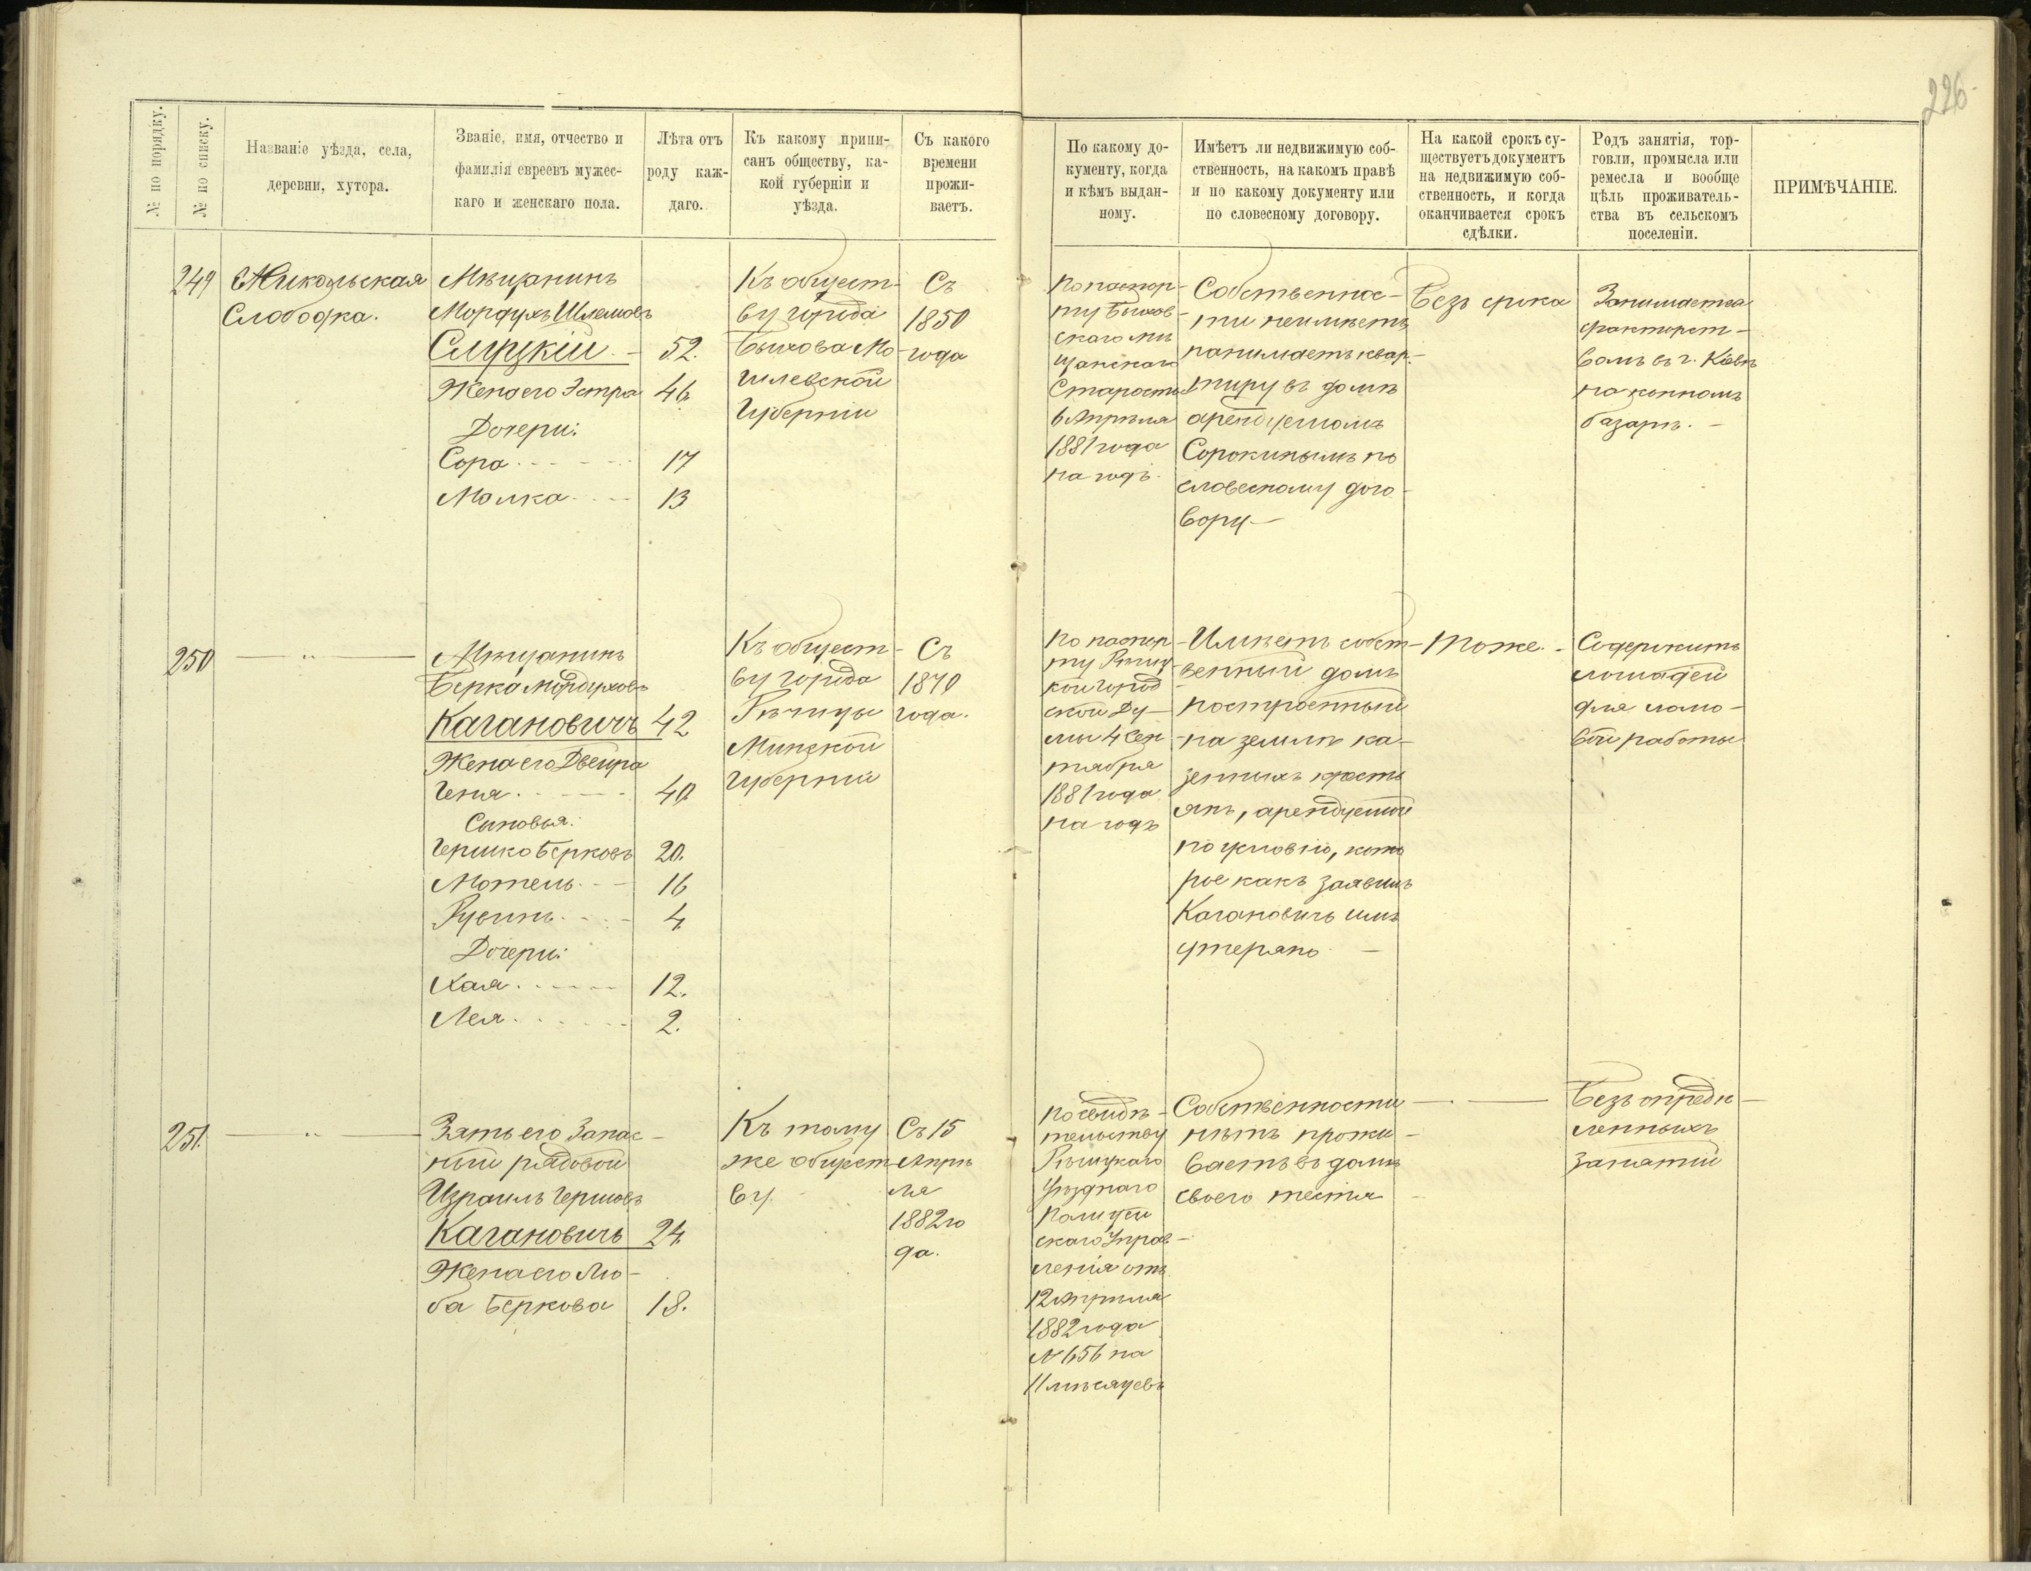 226
№ по порядку.
№ по списку.
Названіе уѣзда, села,
деревни, хутора.
Званіе, имя, отчество и
фамилія евреевъ мужес-
каго и женскаго пола.
Лѣта отъ
роду каж-
даго.
Къ какому припи-
санъ обществу, ка-
кой губерніи и
уѣзда.
Съ какого
времени
прожи-
ваетъ.
По какому до-
кументу, когда
и кѣмъ выдан-
ному.
Имѣетъ ли недвижимую соб-
ственность, на какомъ правѣ
и по какому документу или
по словесному договору.
На какой срокъ су-
ществуетъ документъ
на недвижимую соб-
ственность, и когда
оканчивается срокъ
сдѣлки.
Родъ занятія, тор-
говли, промысла или
ремесла и вообще
цѣль проживатель-
ства въ сельскомъ
поселеніи.
ПРИМѢЧАНІЕ.
249
Никольская
Слободка.
Мѣщанинъ
Мордухъ Шлемовъ
Слуцкій - 52.
Жена его Эстра 46.
Дочери:
Сора 17
Малка 13
Къ общест-
ву города
Быхова Мо-
гилевской
Губерніи
Съ
1850
года
По паспор-
ту Быхов-
скаго мѣ
щанскаго
Старосты
6 Апрѣля
1881 года
на годъ.
Собственнос-
ти неимѣетъ
нанимаетъ квар-
тиру въ домѣ
арендуемомъ
Сорокинымъ по
словесному дого-
вору -
Безъ срока
Занимается
факторст-
вомъ въ г. Кіевѣ
на конномъ
базарѣ. -
250
— " —
Мѣщанинъ
Берка Мордуховъ
Кагановичъ 42
Жена его Двейра
Геня 40
Сыновья:
Гершко Берковъ 20.
Мотель 16
Рувинъ 4
Дочери:
Хая 12.
Лея 2.
Къ общест-
ву города
Рѣчицы
Минской
Губерніи
Съ
1870
года.
По паспор-
ту Рѣчиц-
кой Город-
ской Ду-
мы 4 Сен-
тября
1881 года
на годъ
Имѣетъ собст-
венный домъ
построенный
на землѣ ка-
зенныхъ крестъ
янъ, арендуемой
по условію, кото
рое какъ заявилъ
Кагановичъ имъ
утеряно -
Тоже. -
Содержитъ
лошадей
для ломо-
вой работы
251.
— " —
Зять его Запас-
ный рядовой
Израиль Гершовъ
Кагановичъ 24.
Жена его Лю-
ба Беркова 18.
Къ тому
же общест
ву.
Съ 15
Апрѣ
ля
1882 го
да.
По свидѣ-
тельству
Рѣчицкаго
Уѣзднаго
Полицей
скаго Управ-
ленія отъ
12 Апрѣля
1882 года
№ 656 на
11 мѣсяцевъ
Собственности
нѣтъ прожи-
ваетъ въ домѣ
своего тестя
— . —
Безъ опредѣ-
ленныхъ
занятій